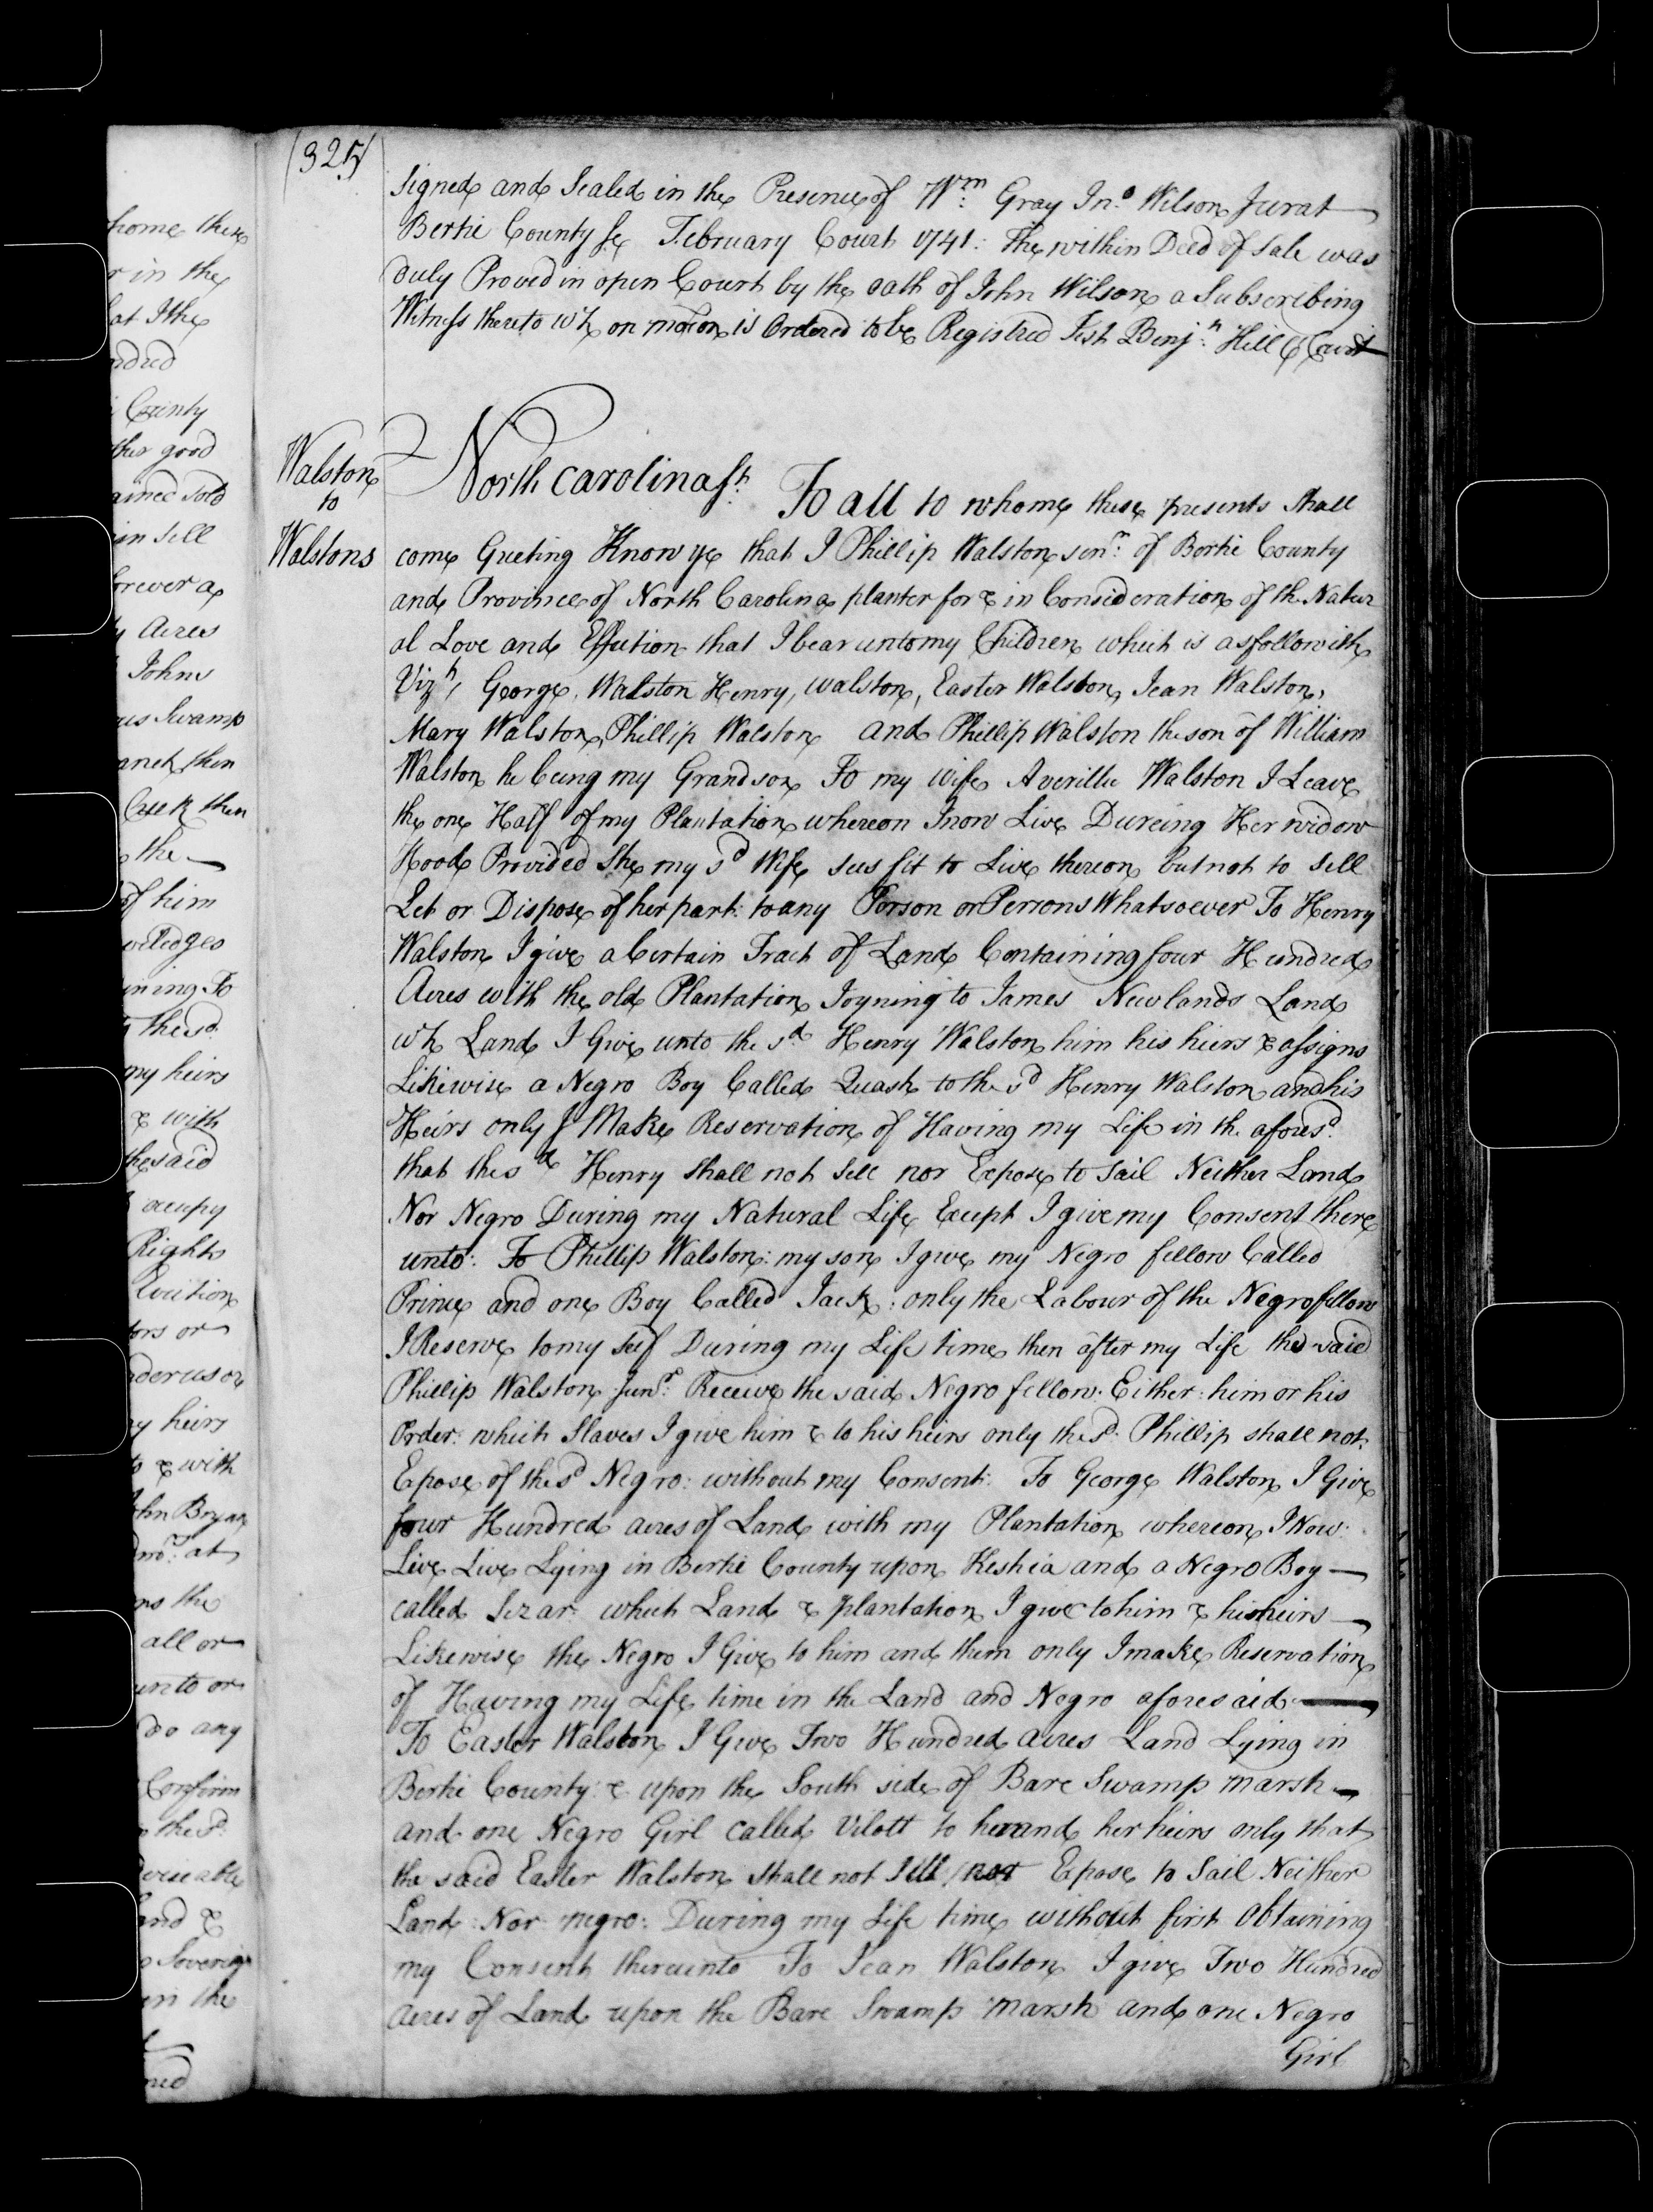 (325)
Signed and Sealed in the Presence of Wm: Gray Jno. Wilson Jurat
Bertie County Sc February Court 1741: The within Deed of Sale was
duly Proved in open Court by the oath of John Wilson a Subscribing
Witness thereto wch on motion is Ordered to be Registred Test Benjn: Hill C Court
Walston
to
Walstons
North Carolina Ss: To all to whome these presents Shall
come Greeting Know ye that I Phillip Walston senr: of Bertie County
and Province of North Carolina planter for & in Consideration of the Natur
al Love and Effection that I bear unto my Children which is as followith
Vizt, George, Walston Henry, walston, Easter Walston, Jean Walston,
Mary Walston, Phillip Walston and Phillip Walston the son of William
Walston he being my Grandson To my wife Averilla Walston I Leave
the one Half of my Plantation whereon I now Live Dureing Her widow
Hood Provided She my sd Wife sees fit to Live thereon but not to sell
Let or Dispose of her part: to any Person or Persons Whatsoever To Henry
Walston I give a Certain Tract of Land Containing four Hundred
Acres with the old Plantation Joyning to James Newlands Land
wch Land I Give unto the sd Henry Walston him his heirs & assigns
Likewise a Negro Boy Called Quash to the sd Henry Walston and his
Heirs only I Make Reservation of Having my Life in the aforesd.
that the sd Henry shall not sell nor Expose to Sail Neither Land
Nor Negro During my Natural Life Except I give my Consent there
unto: To Phillip Walston: my son I give my Negro fellow Called
Prince and one Boy Called Jack: only the Labour of the Negro fellow
I Reserve to my self During my Life time then after my Life the said
Phillip Walston Junr: Receive the said Negro fellow. Either: him or his
Order: which Slaves I give him & to his heirs only the sd: Phillip shall not
Expose of the sd Negro: without my Consent: To George Walston I Give
four Hundred acres of Land with my Plantation whereon I Now:
Live Live Lying in Bertie County upon Keshia and a Negro Boy
called Sezar: which Land & plantation I give to him & his heirs
Likewise the Negro I Give to him and them only I make Reservation
of Having my Life time in the Land and Negro aforesaid
To Easter Walston I Give Two Hundred acres Land Lying in
Bertie County: & upon the South side of Bare Swamp marsh
and one Negro Girl called Vilott to her and her heirs only that
the said Easter Walston shall not Sell nor Expose to Sail Neither
Land: Nor negro: During my Life time without first Obtaining
my Consent thereunto To Jean Walston I give Two Hundred
acres of Land upon the Bare Swamp marsh and one Negro
Girl